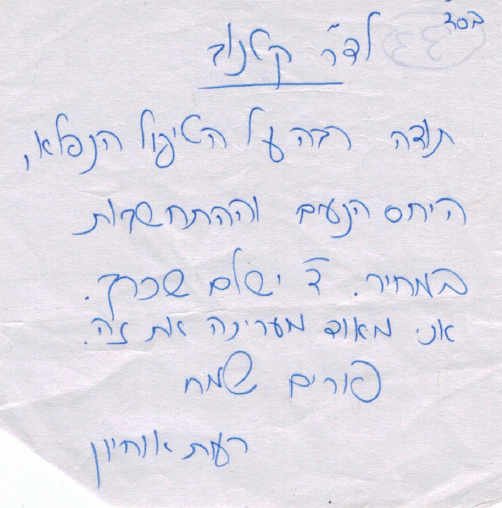 בסד
לד"ר קטנוב
תודה רבה על הטיפול הנפלא,
היחס הנעים וההתחשבות
במחיר. ד' ישלם שכרך.
אני מאוד מעריכה את זה.
פורים שמח
רעות אוחיון